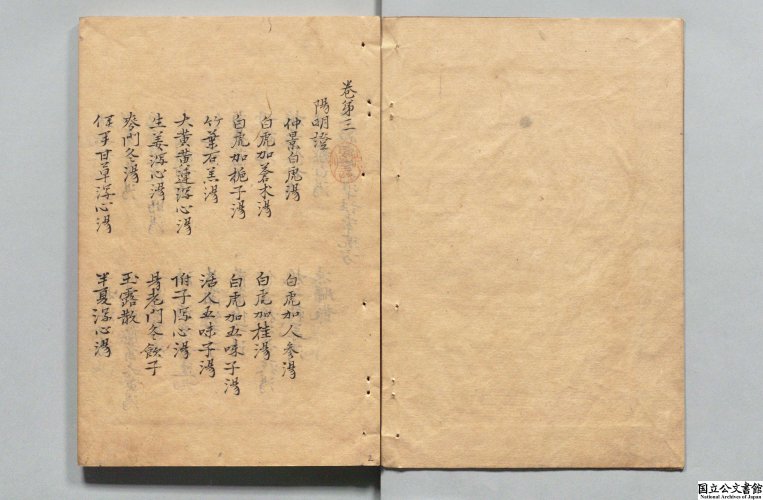 卷第三
陽明證
仲景白虎湯
白虎加人參湯
白虎加蒼术湯
白虎加桂湯
白虎加梔子湯
白虎加五味子湯
竹葉石羔湯
活人五味子湯
大黄黄連瀉心湯
附子瀉心湯
生姜瀉心湯
老門冬飲子
麥門冬湯
玉露散
甘草瀉心湯
半夏瀉心湯
2
国立公文書館
National Archives of Japan